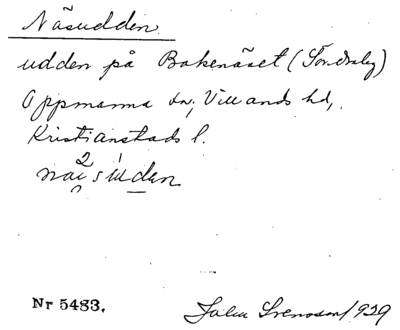 Näsudden.
udden på Bakenäset (Tondsby)
Oppmanna sn; Villands hd,
Kristianstads l.
Nr 5483.
John Svensson 1929